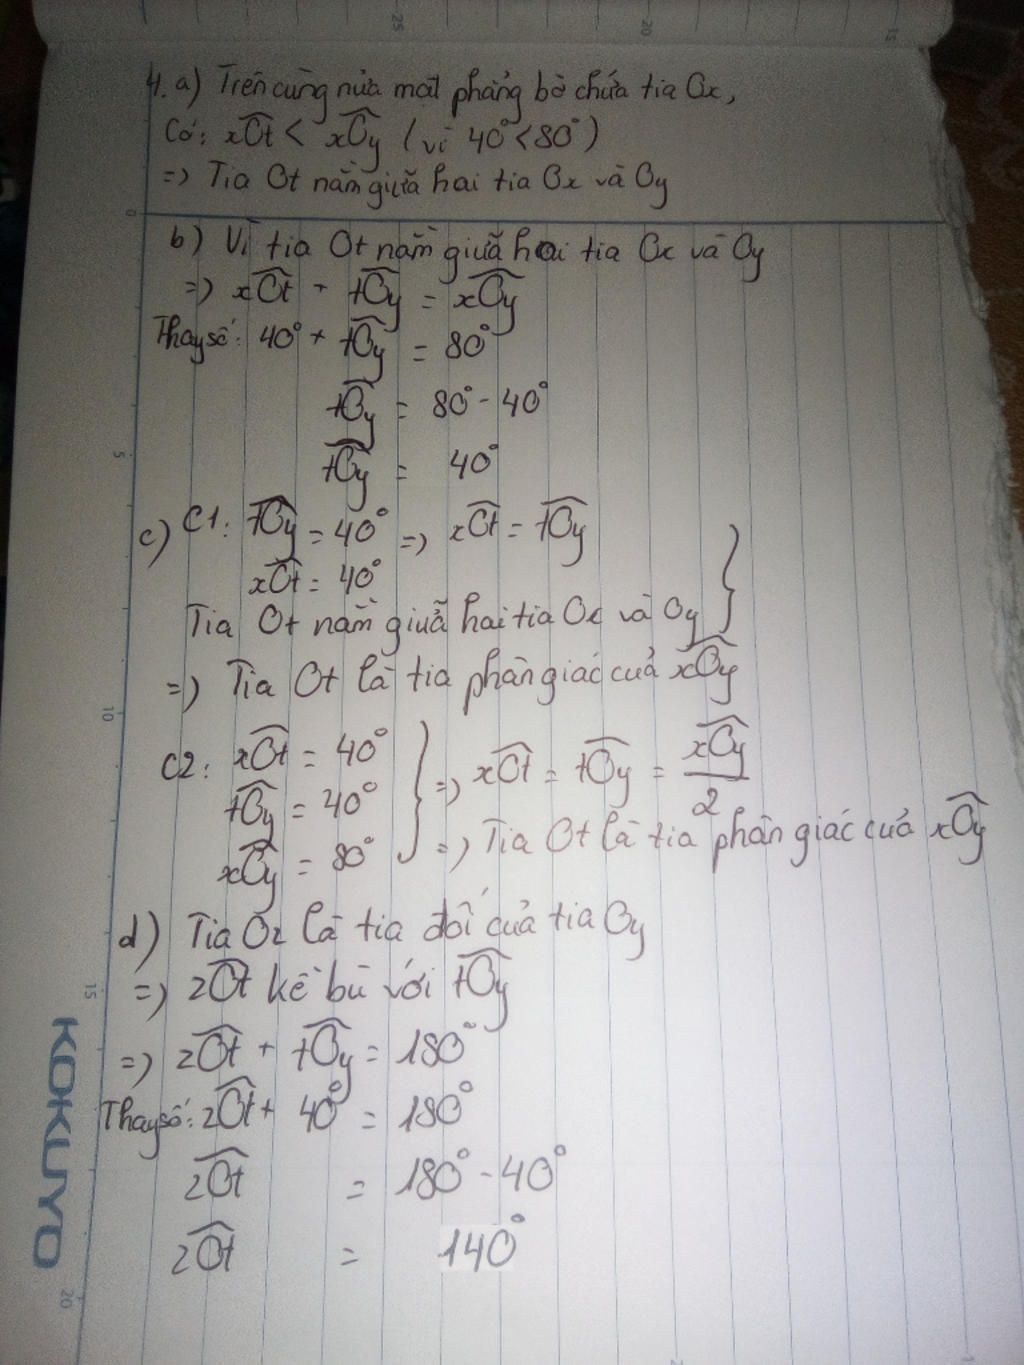 25 20 15
4. a) Trên cùng nửa mặt phẳng bờ chứa tia Ox,
Có: xOt < xOy (vì 40° < 80°)
=> Tia Ot nằm giữa hai tia Ox và Oy
0
b) Vì tia Ot nằm giữa hai tia Ox và Oy
=> xOt + tOy = xOy
Thay số: 40° + tOy = 80°
tOy = 80° - 40°
tOy = 40°
5
c) C1: tOy = 40° => xOt = tOy
xOt = 40°
Tia Ot nằm giữa hai tia Ox và Oy }
=> Tia Ot là tia phân giác của xOy
10
C2: xOt = 40°
tOy = 40° } => xOt = tOy = xOy/2
xOy = 80° => Tia Ot là tia phân giác của xOy
d) Tia Oz là tia đối của tia Oy
=> zOt kề bù với tOy
15
=> zOt + tOy = 180°
Thay số: zOt + 40° = 180°
zOt = 180° - 40°
zOt = 140°
KOKUYO
20